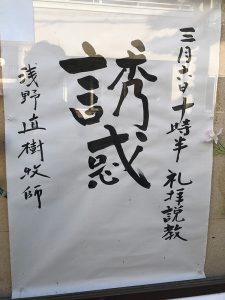 三月六日十時半 礼拝説教
誘惑
浅野直樹牧師